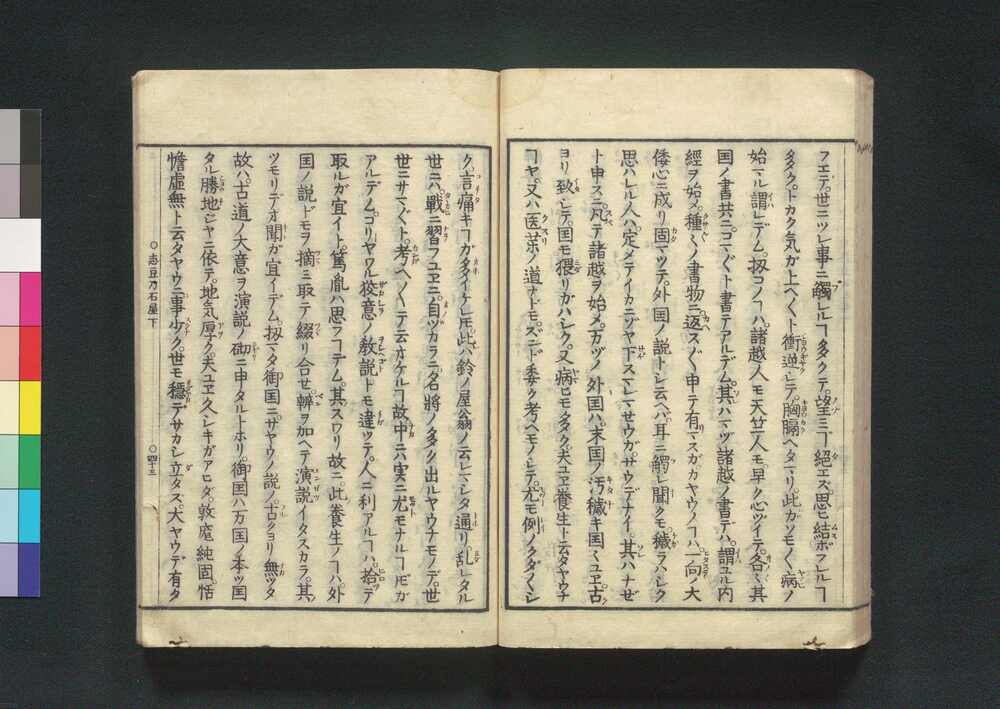 フエテ世ニツレ事ニ觸レルヿ多クテ望ミヿ絕エズ思ヒ結ボフレルヿ
多クトカク気ガ上ヘ〳〵ト衝逆シテ胸膈ヘタマリ此ガソモ〳〵病ノ
始マル謂レデム扨コノヿハ諸越人モ天竺人モ早ク心ヅイテ各〻其
国ノ書共ニコマ〴〵ト書テアルデム其ハマヅ諸越ノ書デハ謂ユル内
經ヲ始メ種〻ノ書物ニ返ス〴〵申テ有マスガカヤウノヿハ一向ノ大
倭心ニ成リ固マツテ外国ノ説トシ云ヘバ耳ニ觸レ聞クモ穢ラハシク
思ハレル人ハ定メテイカニゾヤ下スマレマセウガサウデナイ其ハナゼ
ト申スニ凡テ諸越ヲ始メ万ヅノ外国ハ末国ノ汚穢キ国〻ユヱ古
ヨリ致シテ国モ猥リガハシク又病ヒモ多ク夫ユヱ養生ト云タヤウナ
ヿヤ又ハ医薬ノ道ナドモズンド委ク考ヘモノシテ尤モ例ノクダ〳〵シ
ク言痛キヿガ多イケレ𪜈此ハ鈴ノ屋翁ノ云レマシタ通リ乱レタル
世ニハ戰ニ習フユヱニ自ヅカラニ名將ノ多ク出ルヤウナモノデ世
世ニサマ〴〵ト考ヘ〳〵テ云オケルヿ故中ニハ実ニ尤モナルヿ𪜈ガ
アルデムコリヤワル狡意ノ教説トモ違ツテ人ニ利アルヿハ拾ツテ
取ルガ宜イト篤胤ハ思フヿデム其スワリ故ニ此養生ノヿハ外
国ノ説ドモヲ摘ミ取テ綴リ合セ辨ヲ加ヘテ演説イタスカラ其
ツモリデオ聞ガ宜イデム扨マタ御国ニザヤウノ説ノ古クヨリ無ツタ
故ハ古道ノ大意ヲ演説ノ砌ニ申タルトホリ御国ハ万国ノ本ツ国
タル勝地ジヤニ依テ地気厚ク夫ユヱ久シキガアヒダ敦厖純固恬
憺虚無ト云タヤウニ事少ク世モ穩デサカシ立タス大ヤウデ有タ
○志豆乃石屋下
○四十三